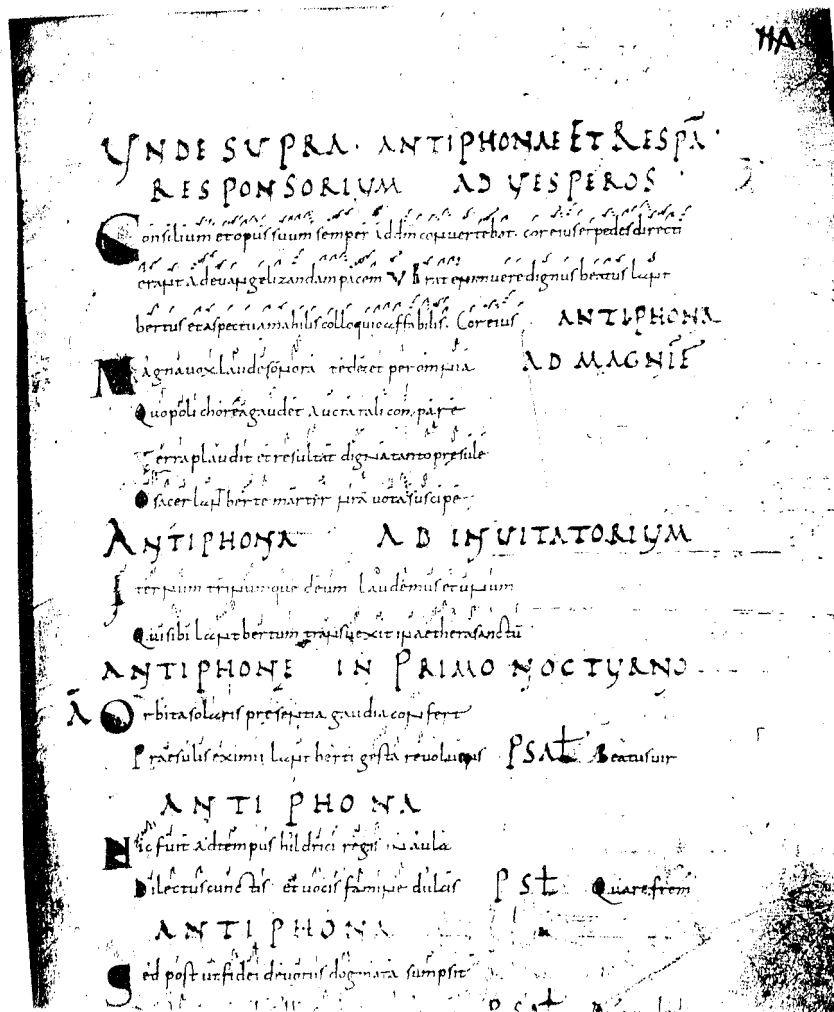 UNDE SUPRA · ANTIPHONAE ET RESPÃ ·
RESPONSORIUM AD VESPEROS
Consilium et opus suum semper ad dm̄ convertebat. cor eius et pedes directi
erant ad evangelizandam pacem V Erat enim vere dignus beatus lant
bertus et aspectu amabilis colloquio affabilis. Cor eius ANTIPHONA
Magna vox laude sonora te decet per omnia AD MAGNIF̄
Quo poli chorea gaudet aucta tali conpare
Terra plaudit et resultat digna tanto presule
O sacer lantberte martir nr̄a vota suscipe
ANTIPHONA AD INVITATORIUM
ternum trinumque deum laudemus et unum
Qui sibi lantbertum transvexit in aethera sanctū
ANTIPHONE IN PRIMO NOCTURNO
Ā Orbita solaris presentia gaudia confert
Praesulis eximii lantberti gesta revolvens PSAL Beatus vir
ANTIPHONA
Hic fuit ad tempus hildrici regis in aula
Dilectus cunctis et vocis famine dulcis PSL Quare frem
ANTIPHONA
Sed post ut fidei devotus dogmata sumpsit
PSAL